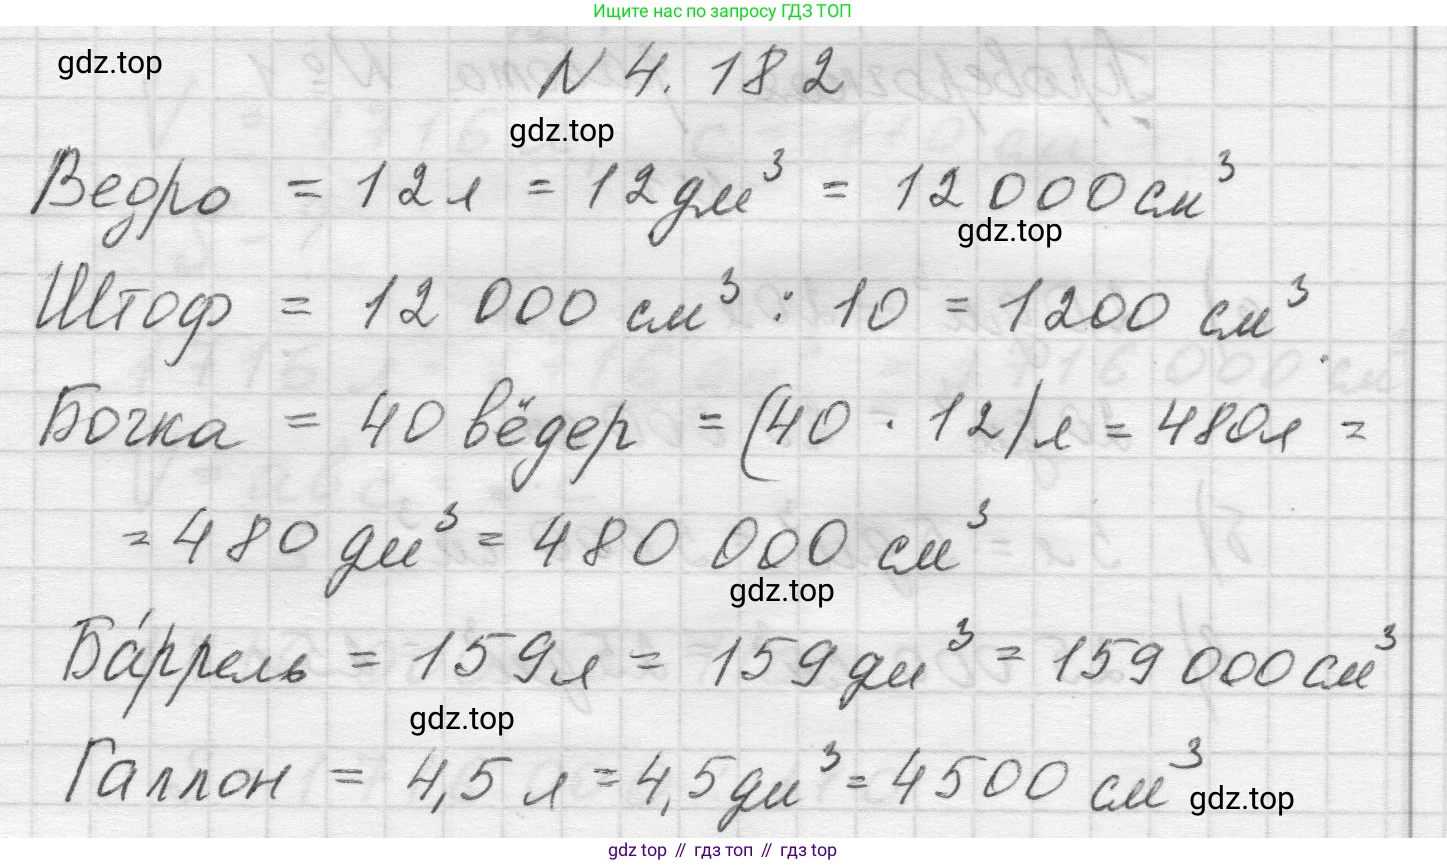 Ищите нас по запросу ГДЗ ТОП
gdz.top
N 4.182
gdz.top
Ведро = 12 л = 12 дм³ = 12 000 см³
gdz.top
Штоф = 12 000 см³ : 10 = 1200 см³.
Бочка = 40 вёдер = (40 · 12) л = 480 л =
= 480 дм³ = 480 000 см³
gdz.top
Ба́ррель = 159 л = 159 дм³ = 159 000 см³
gdz.top
Галлон = 4,5 л = 4,5 дм³ = 4500 см³
gdz.top
gdz top // гдз топ // гдз top